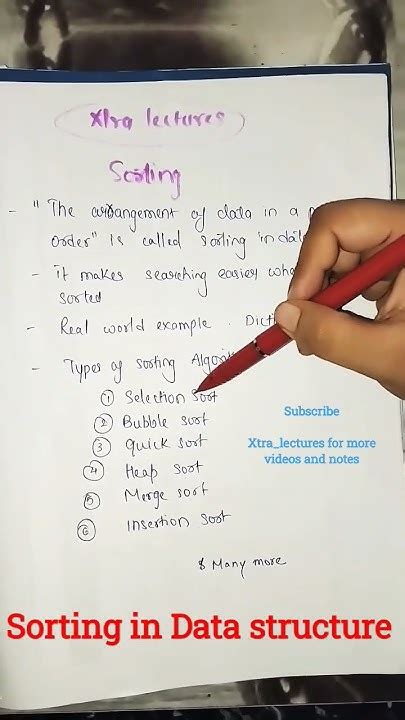 Xtra lectures
Sorting
- "The arrangement of data in a
order" is called sorting in data
- it makes searching easier
sorted
- Real world example . Dict
- Types of sorting Algori
① Selection sort
② Bubble sort
③ Quick sort
④ Heap sort
⑤ Merge sort
⑥ Insertion sort
& Many more
Subscribe
Xtra_lectures for more
videos and notes
Sorting in Data structure